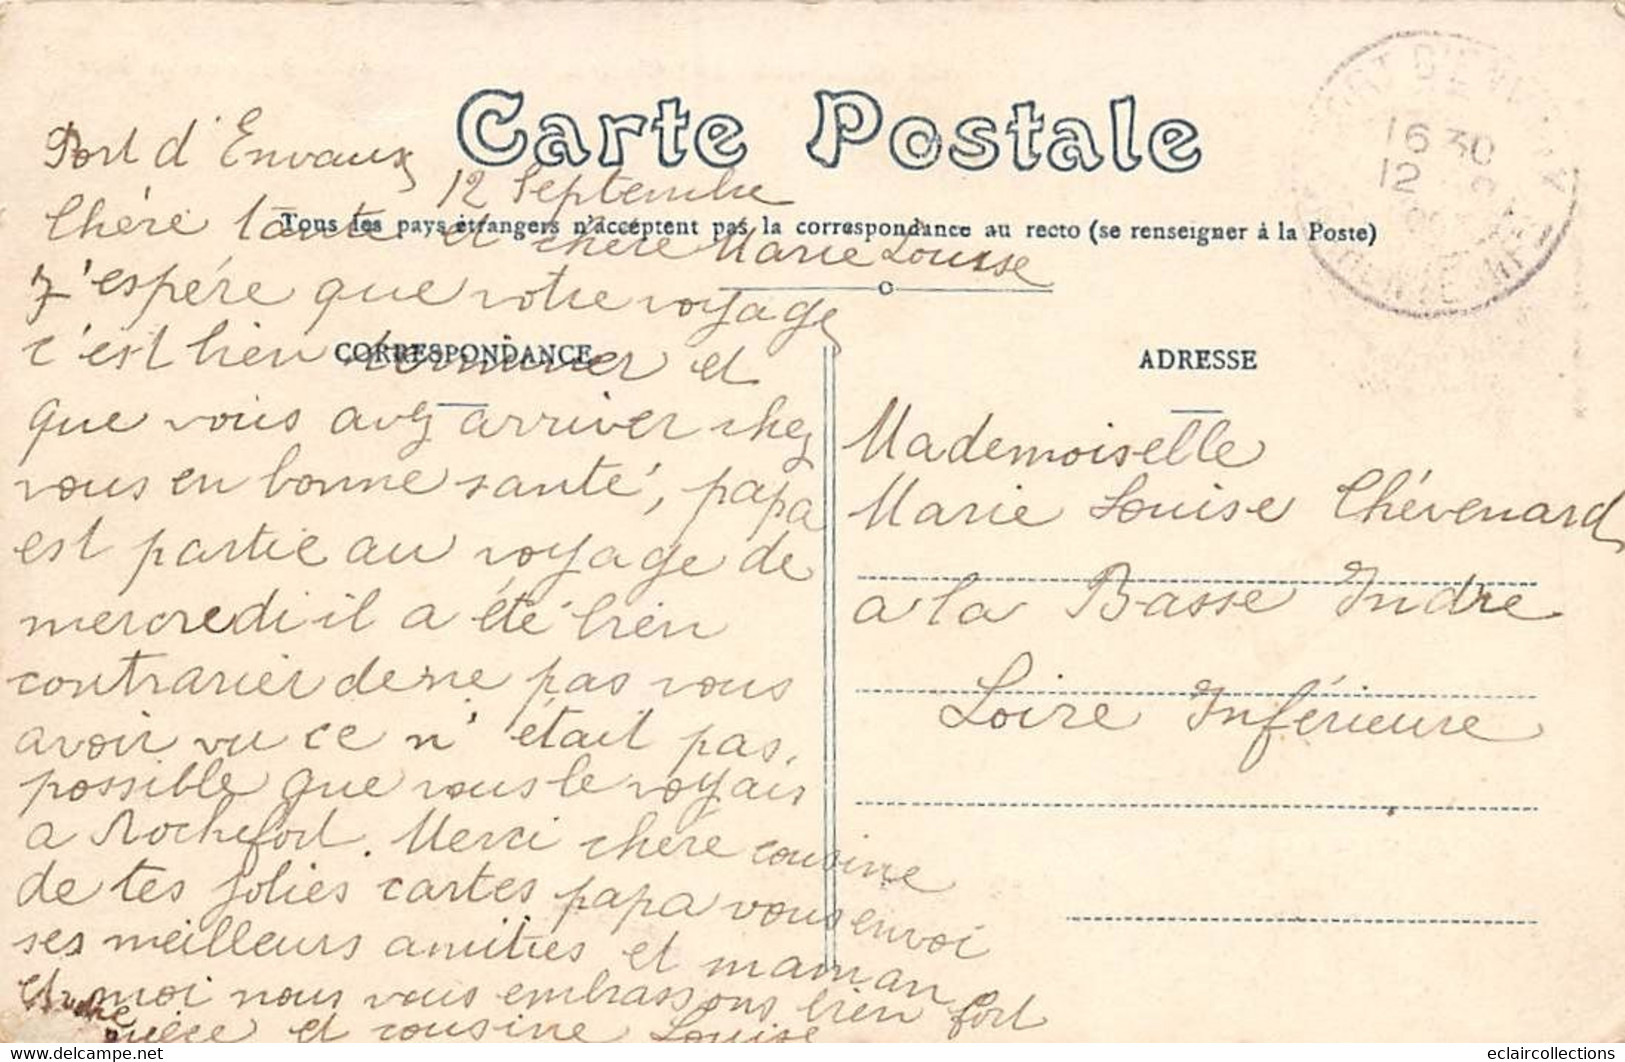 Carte Postale
Port d'Envaux
12 Septembre
Tous les pays étrangers n'acceptent pas la correspondance au recto (se renseigner à la Poste)
Chére tante et chére Marie Louise
J'espére que votre voyage
c'est bien terminer et
que vous avez arriver chez
vous en bonne santé, papa
est partie au voyage de
mercredi il a été bien
contrarier de ne pas vous
avoir vu ce n'était pas
possible que vous le voyais
a Rochefort. Merci chére cousine
de tes jolies cartes papa vous envoi
ses meilleurs amitiés et maman
et moi nous vous embrassons bien fort
nièce et cousine Louise
CORRESPONDANCE
ADRESSE
Mademoiselle
Marie Louise Chévenard
a la Basse Indre
Loire Inférieure
16 30
12
eclaircollections